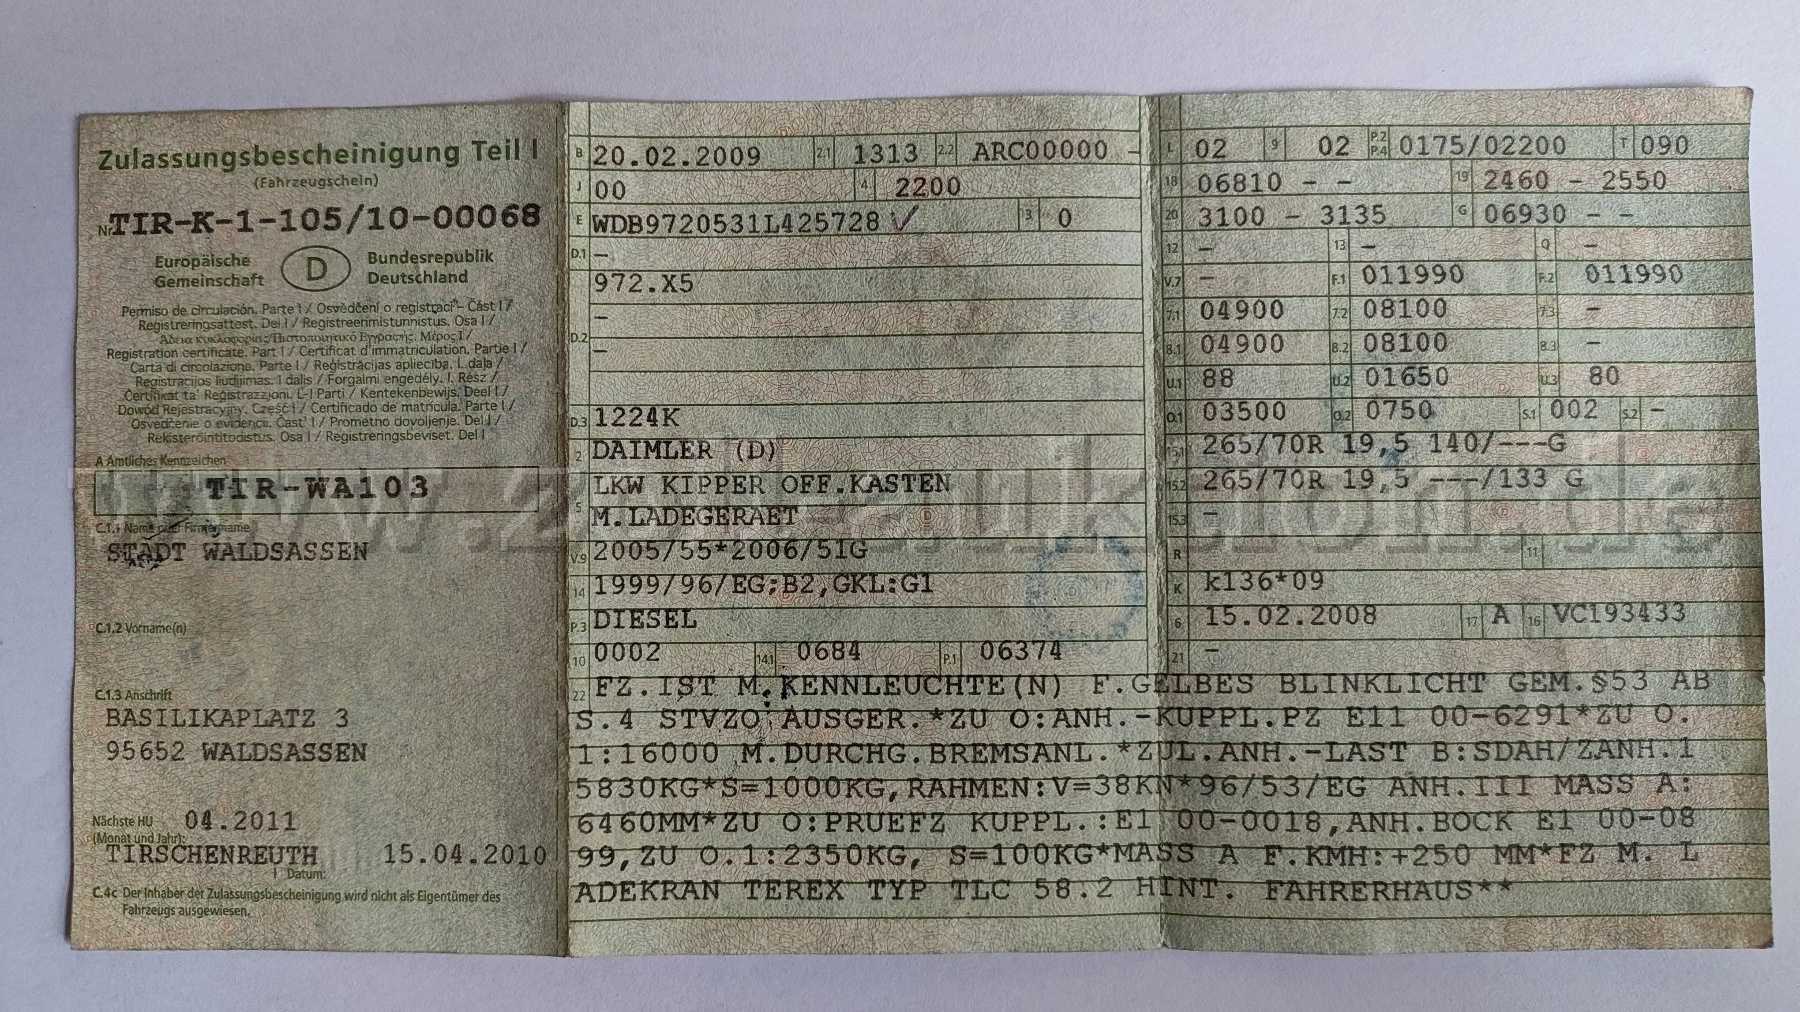 Zulassungsbescheinigung Teil I
(Fahrzeugschein)
Nr. TIR-K-1-105/10-00068
Europäische Gemeinschaft D Bundesrepublik Deutschland
Permiso de circulación. Parte I / Osvědčení o registraci – Část I /
Registreringsattest. Del I / Registreerimistunnistus. Osa I /
Άδεια κυκλοφορίας/Πιστοποιητικό Εγγραφής. Μέρος I /
Registration certificate. Part I / Certificat d'immatriculation. Partie I /
Carta di circolazione. Parte I / Reģistrācijas apliecība. I. daļa /
Registracijos liudijimas. I dalis / Forgalmi engedély. I. Rész /
Ċertifikat ta' Reġistrazzjoni. L-I Parti / Kentekenbewijs. Deel I /
Dowód Rejestracyjny. Część I / Certificado de matrícula. Parte I /
Osvedčenie o evidencii. Časť I / Prometno dovoljenje. Del I /
Rekisteröintitodistus. Osa I / Registreringsbeviset. Del I
A Amtliches Kennzeichen
TIR-WA103
C.1.1 Name oder Firmenname
STADT WALDSASSEN
C.1.2 Vorname(n)
C.1.3 Anschrift
BASILIKAPLATZ 3
95652 WALDSASSEN
Nächste HU 04.2011
(Monat und Jahr):
TIRSCHENREUTH 15.04.2010
Datum:
C.4c Der Inhaber der Zulassungsbescheinigung wird nicht als Eigentümer des
Fahrzeugs ausgewiesen.
B 20.02.2009 2.1 1313 2.2 ARC00000 -
J 00 4 2200
E WDB9720531L425728 3 0
D.1 –
972.X5
–
D.2
–
D.3 1224K
2 DAIMLER (D)
LKW KIPPER OFF.KASTEN
5
M.LADEGERAET
V.9 2005/55*2006/51G
14 1999/96/EG;B2,GKL:G1
P.3 DIESEL
10 0002 14.1 0684 P.1 06374
L 02 9 02 P.2 P.4 0175/02200 T 090
18 06810 - - 19 2460 - 2550
20 3100 - 3135 G 06930 - -
12 – 13 – Q –
V.7 – F.1 011990 F.2 011990
7.1 04900 7.2 08100 7.3 –
8.1 04900 8.2 08100 8.3 –
U.1 88 U.2 01650 U.3 80
O.1 03500 O.2 0750 S.1 002 S.2 –
15.1 265/70R 19,5 140/---G
15.2 265/70R 19,5 ---/133 G
15.3 –
R 11
K k136*09
6 15.02.2008 17 A 16 VC193433
21 –
22 FZ.IST M.KENNLEUCHTE(N) F.GELBES BLINKLICHT GEM.§53 AB
S.4 STVZO AUSGER.*ZU O:ANH.-KUPPL.PZ E11 00-6291*ZU O.
1:16000 M.DURCHG.BREMSANL.*ZUL.ANH.-LAST B:SDAH/ZANH.1
5830KG*S=1000KG,RAHMEN:V=38KN*96/53/EG ANH.III MASS A:
6460MM*ZU O:PRUEFZ KUPPL.:E1 00-0018,ANH.BOCK E1 00-08
99,ZU O.1:2350KG, S=100KG*MASS A F.KMH:+250 MM*FZ M. L
ADEKRAN TEREX TYP TLC 58.2 HINT. FAHRERHAUS**